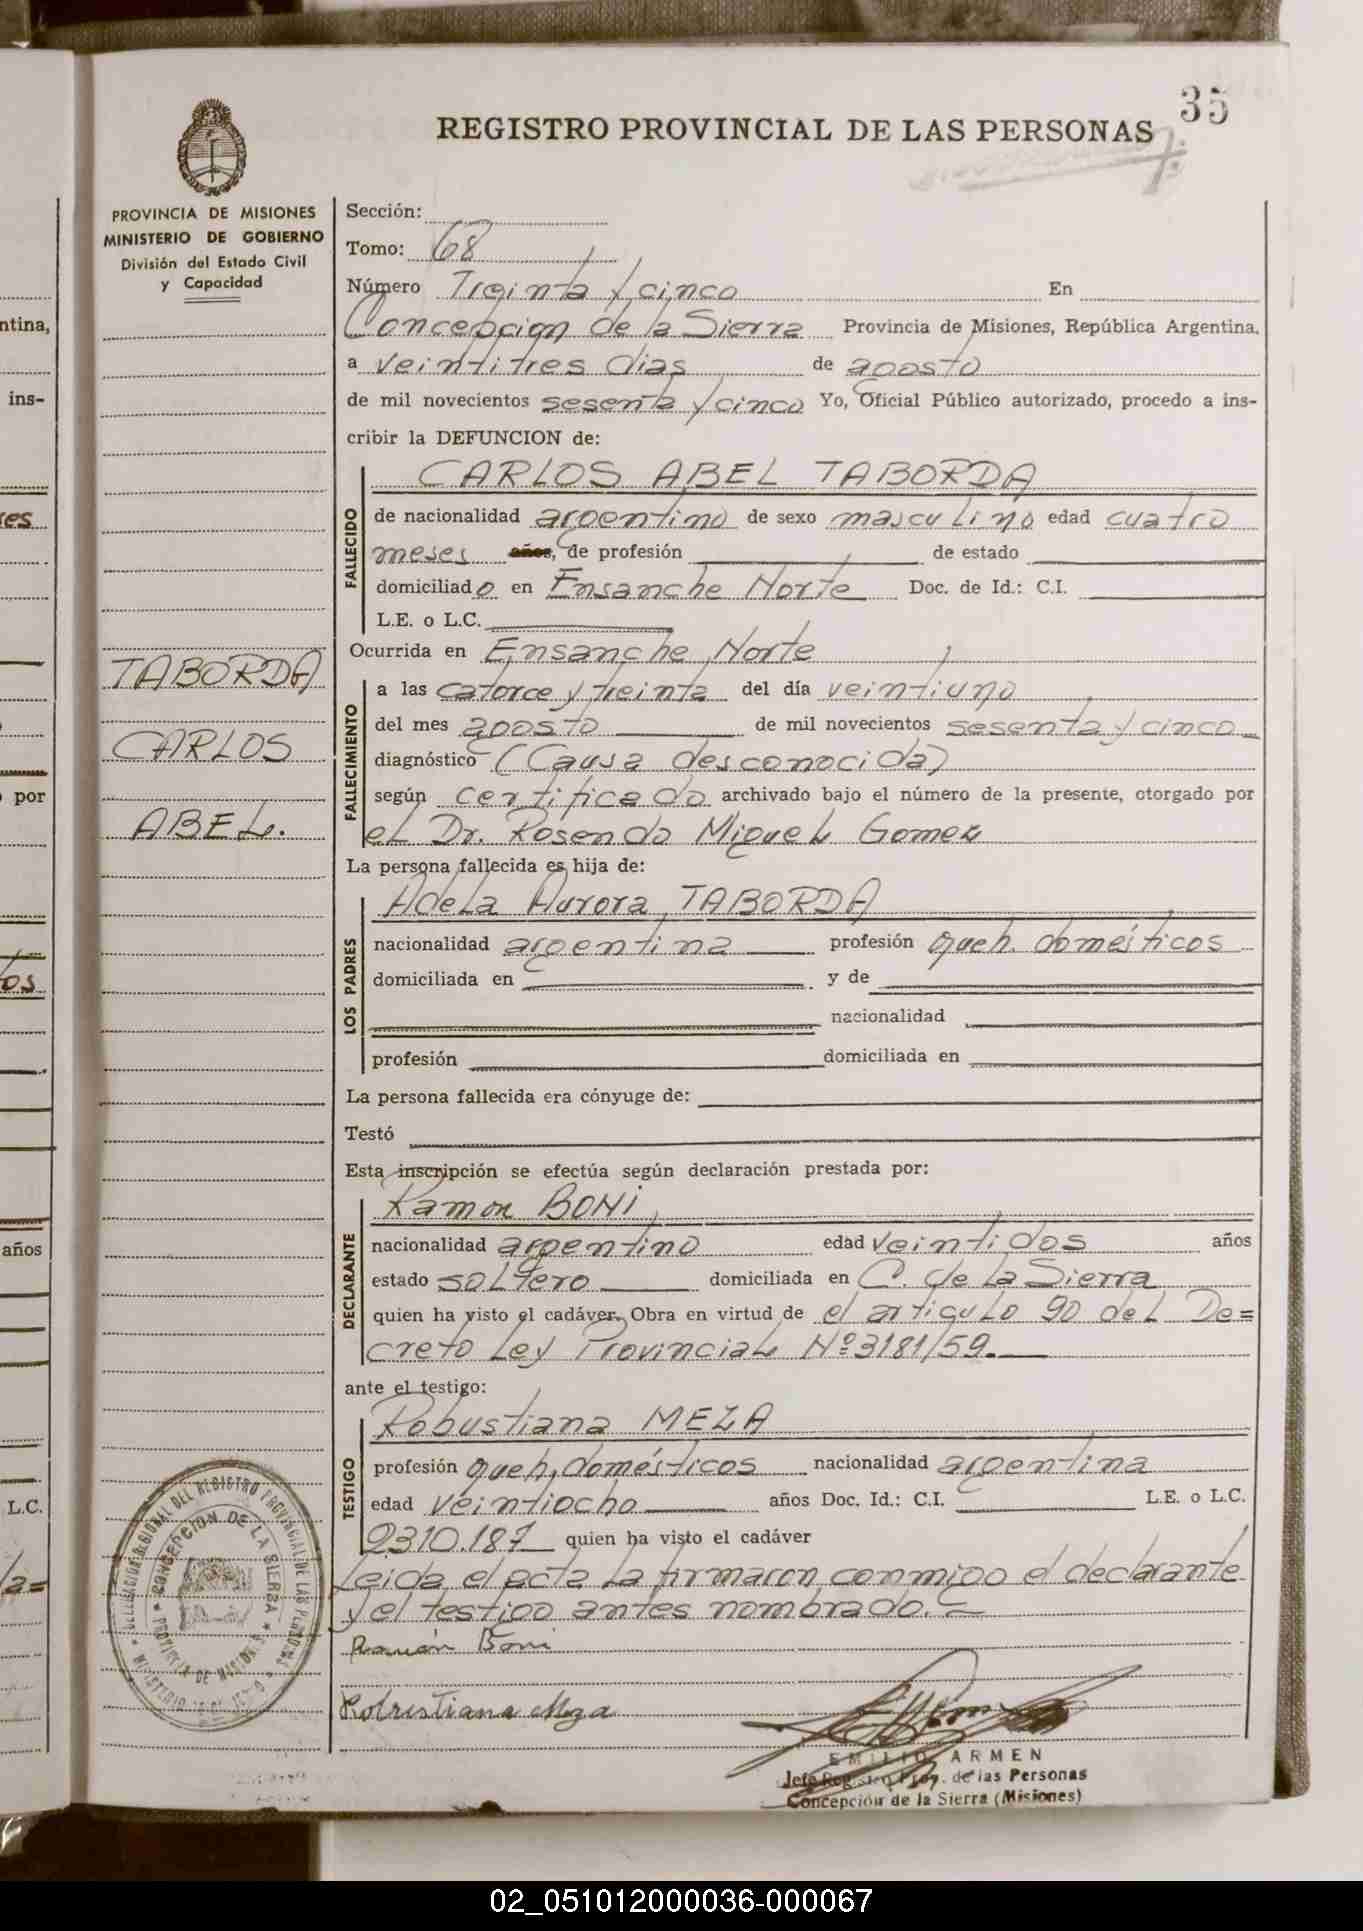 35
REGISTRO PROVINCIAL DE LAS PERSONAS
PROVINCIA DE MISIONES
MINISTERIO DE GOBIERNO
División del Estado Civil
y Capacidad
Sección:
Tomo: 68
Número Treinta y cinco En
Concepcion de la Sierra Provincia de Misiones, República Argentina,
a veintitres dias de agosto
de mil novecientos sesenta y cinco Yo, Oficial Público autorizado, procedo a ins-
cribir la DEFUNCION de:
FALLECIDO
CARLOS ABEL TABORDA
de nacionalidad argentino de sexo masculino edad cuatro
meses años, de profesión de estado
domiciliado en Ensanche Norte Doc. de Id.: C.I.
L.E. o L.C.
TABORDA
CARLOS
ABEL.
Ocurrida en Ensanche Norte
FALLECIMIENTO
a las catorce y treinta del día veintiuno
del mes agosto de mil novecientos sesenta y cinco
diagnóstico (Causa desconocida)
según certificado archivado bajo el número de la presente, otorgado por
el Dr. Rosendo Miguel Gomez
La persona fallecida es hija de:
LOS PADRES
Adela Aurora TABORDA
nacionalidad argentina profesión queh. domésticos
domiciliada en y de
nacionalidad
profesión domiciliada en
La persona fallecida era cónyuge de:
Testó
Esta inscripción se efectúa según declaración prestada por:
DECLARANTE
Ramon BONI
nacionalidad argentino edad veintidos años
estado soltero domiciliada en C. de la Sierra
quien ha visto el cadáver. Obra en virtud de el articulo 90 del De=
creto Ley Provincial Nº3181/59.
ante el testigo:
TESTIGO
Robustiana MEZA
profesión queh. domésticos nacionalidad argentina
edad veintiocho años Doc. Id.: C.I. L.E. o L.C.
2310.187 quien ha visto el cadáver
Leida el acta la firmaron conmigo el declarante
y el testigo antes nombrado.
Ramón Boni
Robustiana Meza
DELEGACION REGIONAL DEL REGISTRO PROVINCIAL DE LAS PERSONAS
CONCEPCION DE LA SIERRA
PROVINCIA DE MISIONES
EMILIO ARMEN
Jefe Registro Prov. de las Personas
Concepción de la Sierra (Misiones)
ntina,
ins-
res
por
tos
años
L.C.
02_051012000036-000067